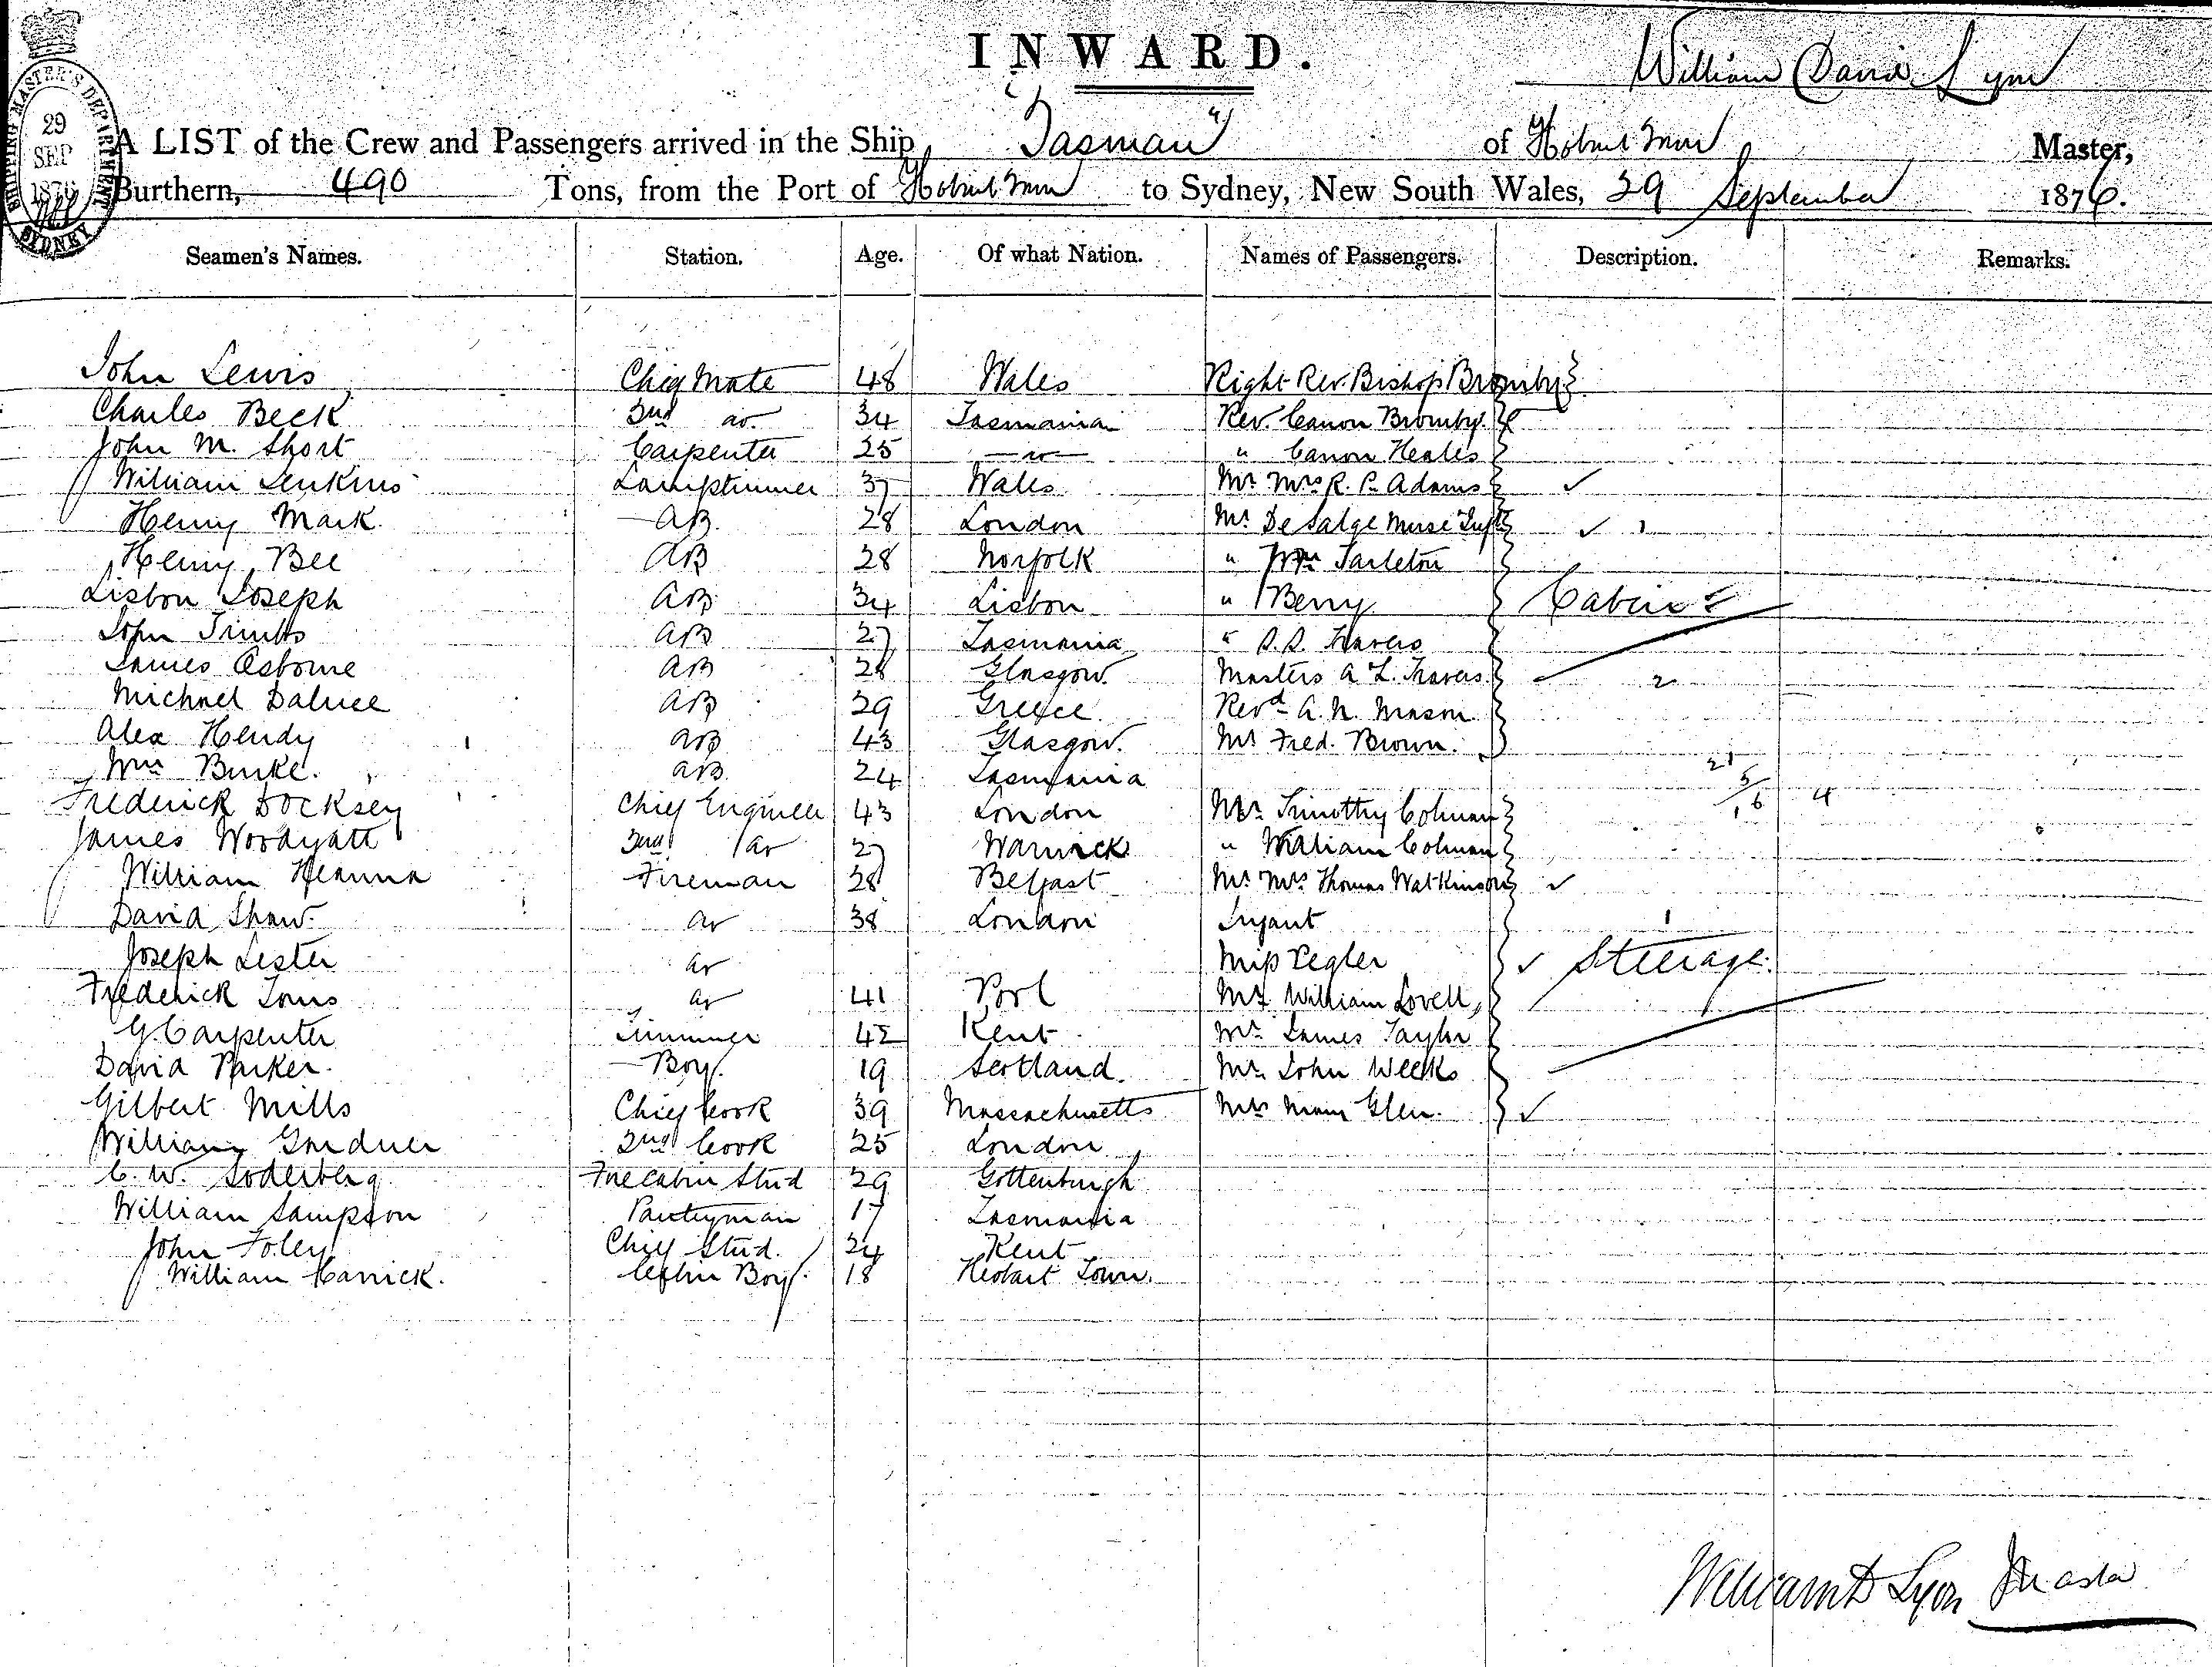 INWARD.
William David Lyon
SHIPPING MASTER'S DEPARTMENT
29
SEP
1876
SYDNEY
A LIST of the Crew and Passengers arrived in the Ship "Tasman" of Hobart Town Master,
Burthern, 490 Tons, from the Port of Hobart Town to Sydney, New South Wales, 29 September 1876.
Seamen's Names. Station. Age. Of what Nation. Names of Passengers. Description. Remarks.
John Lewis Chief Mate 48 Wales Right Rev. Bishop Bromby
Charles Beck 2nd do. 34 Tasmania Rev. Canon Bromby
John M. Short Carpenter 25 do " Canon Heales
William Jenkins Lamptrimmer 37 Wales Mr Mrs R. P. Adams ✓
Henry Mark AB. 28 London Mr De Salge ✓ 1
Henry Bee AB 28 Norfolk " Wm Tarleton
Lisbon Joseph AB 34 Lisbon " Berry Cabin
John AB 27 Tasmania " S.S. Travers
James Osborne AB 28 Glasgow Masters A L. Travers 2
Michael AB 29 Greece Revd A. N. Mason
Alex Hendy AB 43 Glasgow Mr Fred. Brown.
Wm Burke. AB 24 Tasmania 21
5
Frederick Docksey Chief Engineer 43 London Mr Timothy Colman 16 4
James Woodyatt 2nd do 27 Warwick " William Colman
William Hanna Fireman 28 Belfast Mr Mrs Thomas Watkinson ✓
David Shaw. do 38 London Infant 1
Joseph Lester do Miss Pegler ✓ Steerage.
Frederick do 41 Mr William Lovell,
G. Carpenter Trimmer 42 Kent Mr James Taylor
David Parker. Boy. 19 Scotland. Mr John Weeks
Gilbert Mills Chief Cook 39 Massachusetts Mrs Mary Glen. ✓
William Gardner 2nd Cook 25 London
C. W. Soderberg Fore Cabin Stud 29 Gottenburgh
William Sampson Pantryman 17 Tasmania
John Foley Chief Stud. 24 Kent
William Carrick. Cabin Boy. 18 Hobart Town.
William D Lyon Master